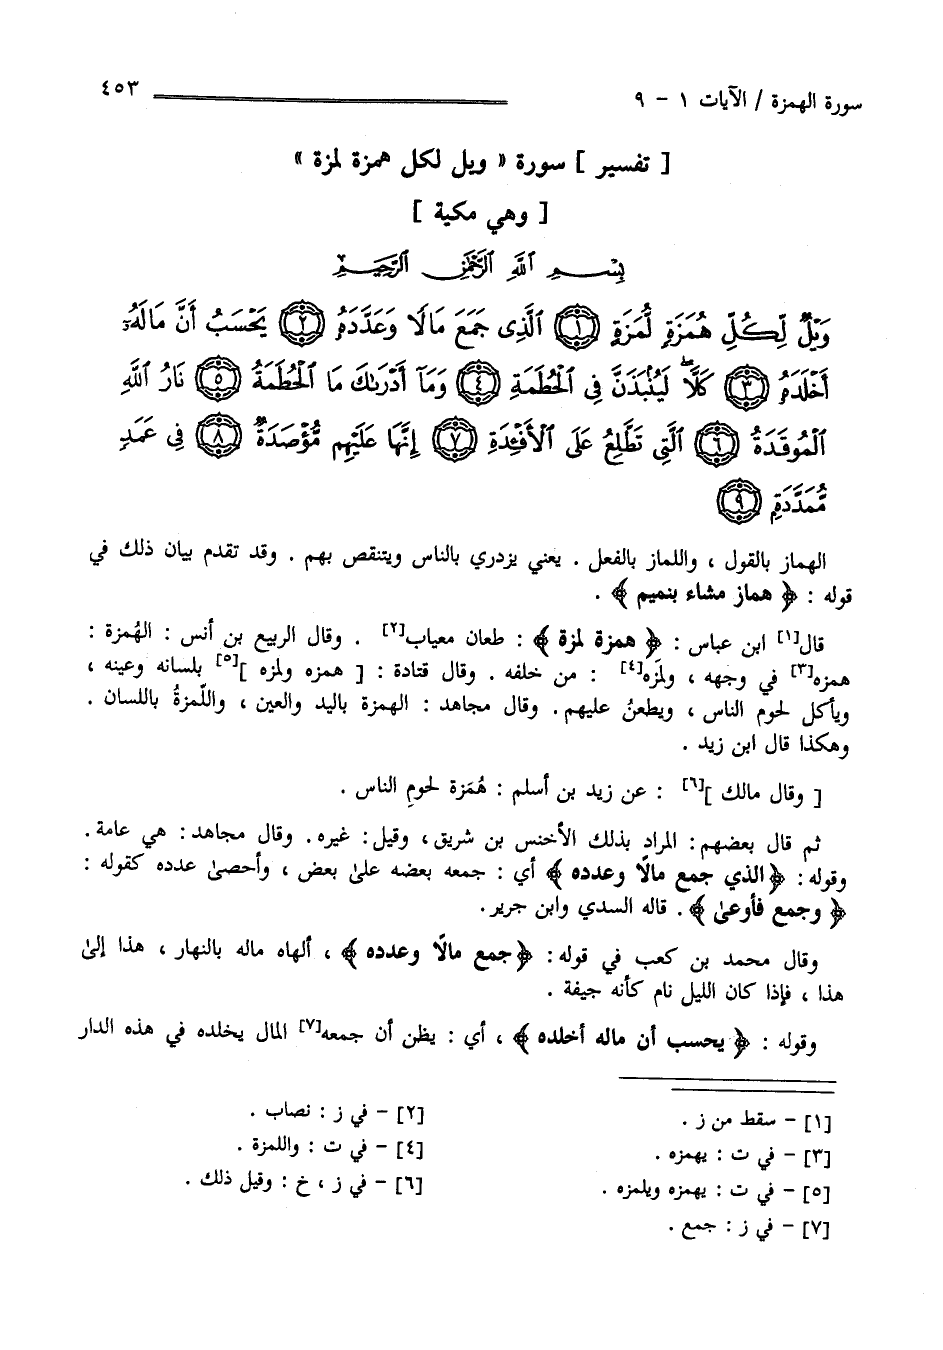 سورة الهمزة / الآيات ١ - ٩
٤٥٣
[ تفسير ] سورة « ويل لكل همزة لمزة »
[ وهي مكية ]
بِسْمِ ٱللَّهِ ٱلرَّحْمَٰنِ ٱلرَّحِيمِ
وَيْلٌ لِّكُلِّ هُمَزَةٍ لُّمَزَةٍ ١ ٱلَّذِى جَمَعَ مَالًا وَعَدَّدَهُۥ ٢ يَحْسَبُ أَنَّ مَالَهُۥٓ
أَخْلَدَهُۥ ٣ كَلَّا ۖ لَيُنۢبَذَنَّ فِى ٱلْحُطَمَةِ ٤ وَمَآ أَدْرَىٰكَ مَا ٱلْحُطَمَةُ ٥ نَارُ ٱللَّهِ
ٱلْمُوقَدَةُ ٦ ٱلَّتِى تَطَّلِعُ عَلَى ٱلْأَفْـِٔدَةِ ٧ إِنَّهَا عَلَيْهِم مُّؤْصَدَةٌ ٨ فِى عَمَدٍ
مُّمَدَّدَةٍۭ ٩
الهماز بالقول ، واللماز بالفعل . يعني يزدري بالناس ويتنقص بهم . وقد تقدم بيان ذلك في
قوله : ﴿ هماز مشاء بنميم ﴾ .
قال[١] ابن عباس : ﴿ همزة لمزة ﴾ : طعان معياب[٢] . وقال الربيع بن أنس : الهُمزة :
همزه[٣] في وجهه ، ولمَزه[٤] : من خلفه . وقال قتادة : [ همزه ولمزه ][٥] بلسانه وعينه ،
ويأكل لحوم الناس ، ويطعنُ عليهم . وقال مجاهد : الهمزة باليد والعين ، واللّمزةُ باللسان .
وهكذا قال ابن زيد .
[ وقال مالك ][٦] : عن زيد بن أسلم : هُمَزة لحومِ الناس .
ثم قال بعضهم : المراد بذلك الأخنس بن شريق ، وقيل : غيره . وقال مجاهد : هي عامة .
وقوله : ﴿ الذي جمع مالًا وعدده ﴾ أي : جمعه بعضه علىٰ بعض ، وأحصىٰ عدده كقوله :
﴿ وجمع فأوعىٰ ﴾ . قاله السدي وابن جرير .
وقال محمد بن كعب في قوله : ﴿ جمع مالًا وعدده ﴾ ، ألهاه ماله بالنهار ، هذا إلىٰ
هذا ، فإذا كان الليل نام كأنه جيفة .
وقوله : ﴿ يحسب أن ماله أخلده ﴾ ، أي : يظن أن جمعه[٧] المال يخلده في هذه الدار
[١] - سقط من ز .
[٢] - في ز : نصاب .
[٣] - في ت : يهمزه .
[٤] - في ت : واللمزة .
[٥] - في ت : يهمزه ويلمزه .
[٦] - في ز ، خ : وقيل ذلك .
[٧] - في ز : جمع .